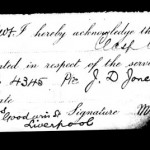 I hereby acknowledge th
Clasp
ted in respect of the serv
4345 Pte J. D. Jone
ate
Goodwin St Signature M
Liverpool